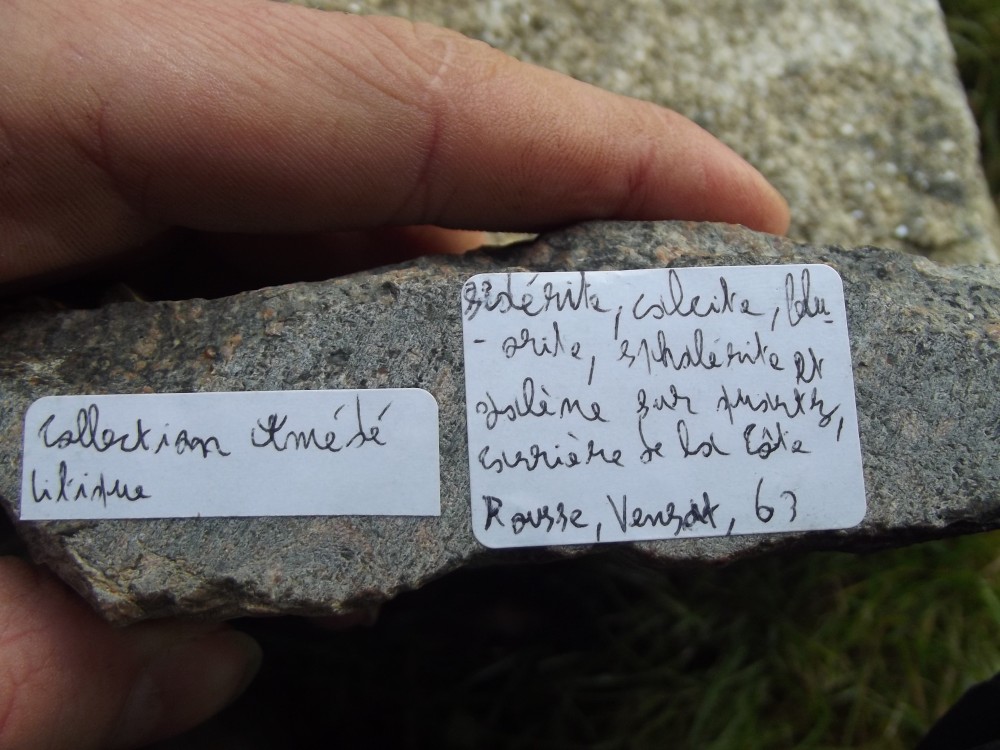 Collection Amédé
litique
sidérite, calcite, flu-
- orite, sphalérite et
galène sur quartz,
carrière de la Côte
Rousse, Vensat, 63